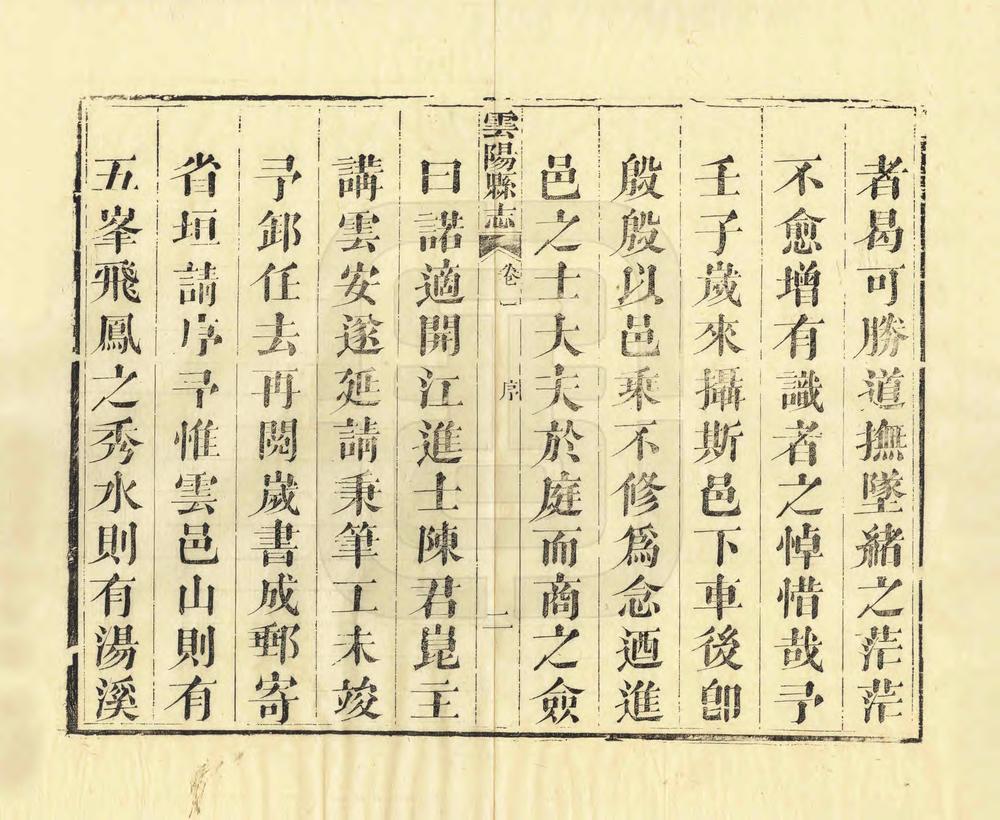 者曷可勝道撫墜緒之茫茫
不愈增有識者之悼惜哉予
壬子歲來攝斯邑下車後卽
殷殷以邑乘不修爲念迺進
邑之士大夫於庭而商之僉
雲陽縣志 卷一 序 二
曰諾適開江進士陳君崑主
講雲安遂延請秉筆工未竣
予卸任去再閱歲書成郵寄
省垣請序予惟雲邑山則有
五峯飛鳳之秀水則有湯溪